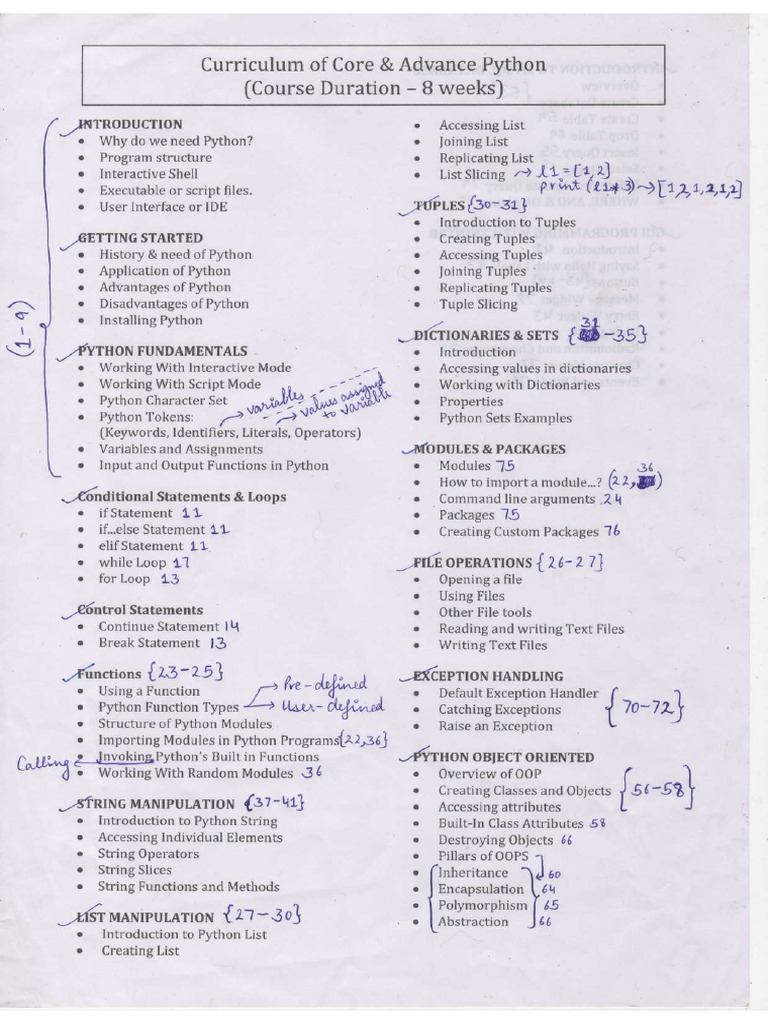 Curriculum of Core & Advance Python
(Course Duration – 8 weeks)
(1-9)
INTRODUCTION
• Why do we need Python?
• Program structure
• Interactive Shell
• Executable or script files.
• User Interface or IDE
GETTING STARTED
• History & need of Python
• Application of Python
• Advantages of Python
• Disadvantages of Python
• Installing Python
PYTHON FUNDAMENTALS
• Working With Interactive Mode
• Working With Script Mode
• Python Character Set
• Python Tokens:
→ variables
→ values assigned
to variable
(Keywords, Identifiers, Literals, Operators)
• Variables and Assignments
• Input and Output Functions in Python
Conditional Statements & Loops
• if Statement 11
• if...else Statement 11
• elif Statement 11
• while Loop 17
• for Loop 13
Control Statements
• Continue Statement 14
• Break Statement 13
Functions {23-25}
• Using a Function
• Python Function Types → Pre-defined
→ User-defined
• Structure of Python Modules
• Importing Modules in Python Programs {22,36}
Calling
• Invoking Python's Built in Functions
• Working With Random Modules 36
STRING MANIPULATION {37-41}
• Introduction to Python String
• Accessing Individual Elements
• String Operators
• String Slices
• String Functions and Methods
LIST MANIPULATION {27-30}
• Introduction to Python List
• Creating List
• Accessing List
• Joining List
• Replicating List
• List Slicing → l1 = [1,2]
print (l1*3) → [1,2,1,2,1,2]
TUPLES {30-31}
• Introduction to Tuples
• Creating Tuples
• Accessing Tuples
• Joining Tuples
• Replicating Tuples
• Tuple Slicing
DICTIONARIES & SETS {31-35}
• Introduction
• Accessing values in dictionaries
• Working with Dictionaries
• Properties
• Python Sets Examples
MODULES & PACKAGES
• Modules 75
• How to import a module...? (22,36)
• Command line arguments 24
• Packages 75
• Creating Custom Packages 76
FILE OPERATIONS {26-27}
• Opening a file
• Using Files
• Other File tools
• Reading and writing Text Files
• Writing Text Files
EXCEPTION HANDLING
• Default Exception Handler
• Catching Exceptions {70-72}
• Raise an Exception
PYTHON OBJECT ORIENTED
• Overview of OOP
• Creating Classes and Objects {56-58}
• Accessing attributes
• Built-In Class Attributes 58
• Destroying Objects 66
• Pillars of OOPS
• Inheritance 60
• Encapsulation 64
• Polymorphism 65
• Abstraction 66